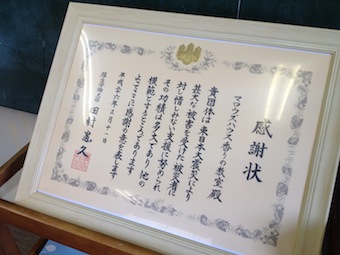 感謝状
マロウズハウス香りの教室 殿
貴団体は東日本大震災により
甚大な被害を受けた被災者に
対し惜しみない支援に努められ
その功績は多大であり他の
模範とするところであります
よってここに感謝の意を表します
平成二十六年三月十一日
厚生労働大臣 田村憲久